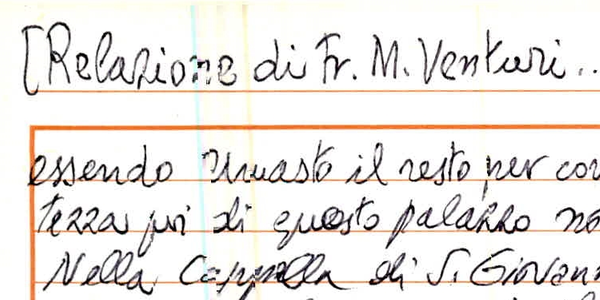 [Relazione di Fr. M. Venturi..
essendo rimasto il resto per cor
tezza qui di questo palazzo no
Nella Cappella di S. Giovann